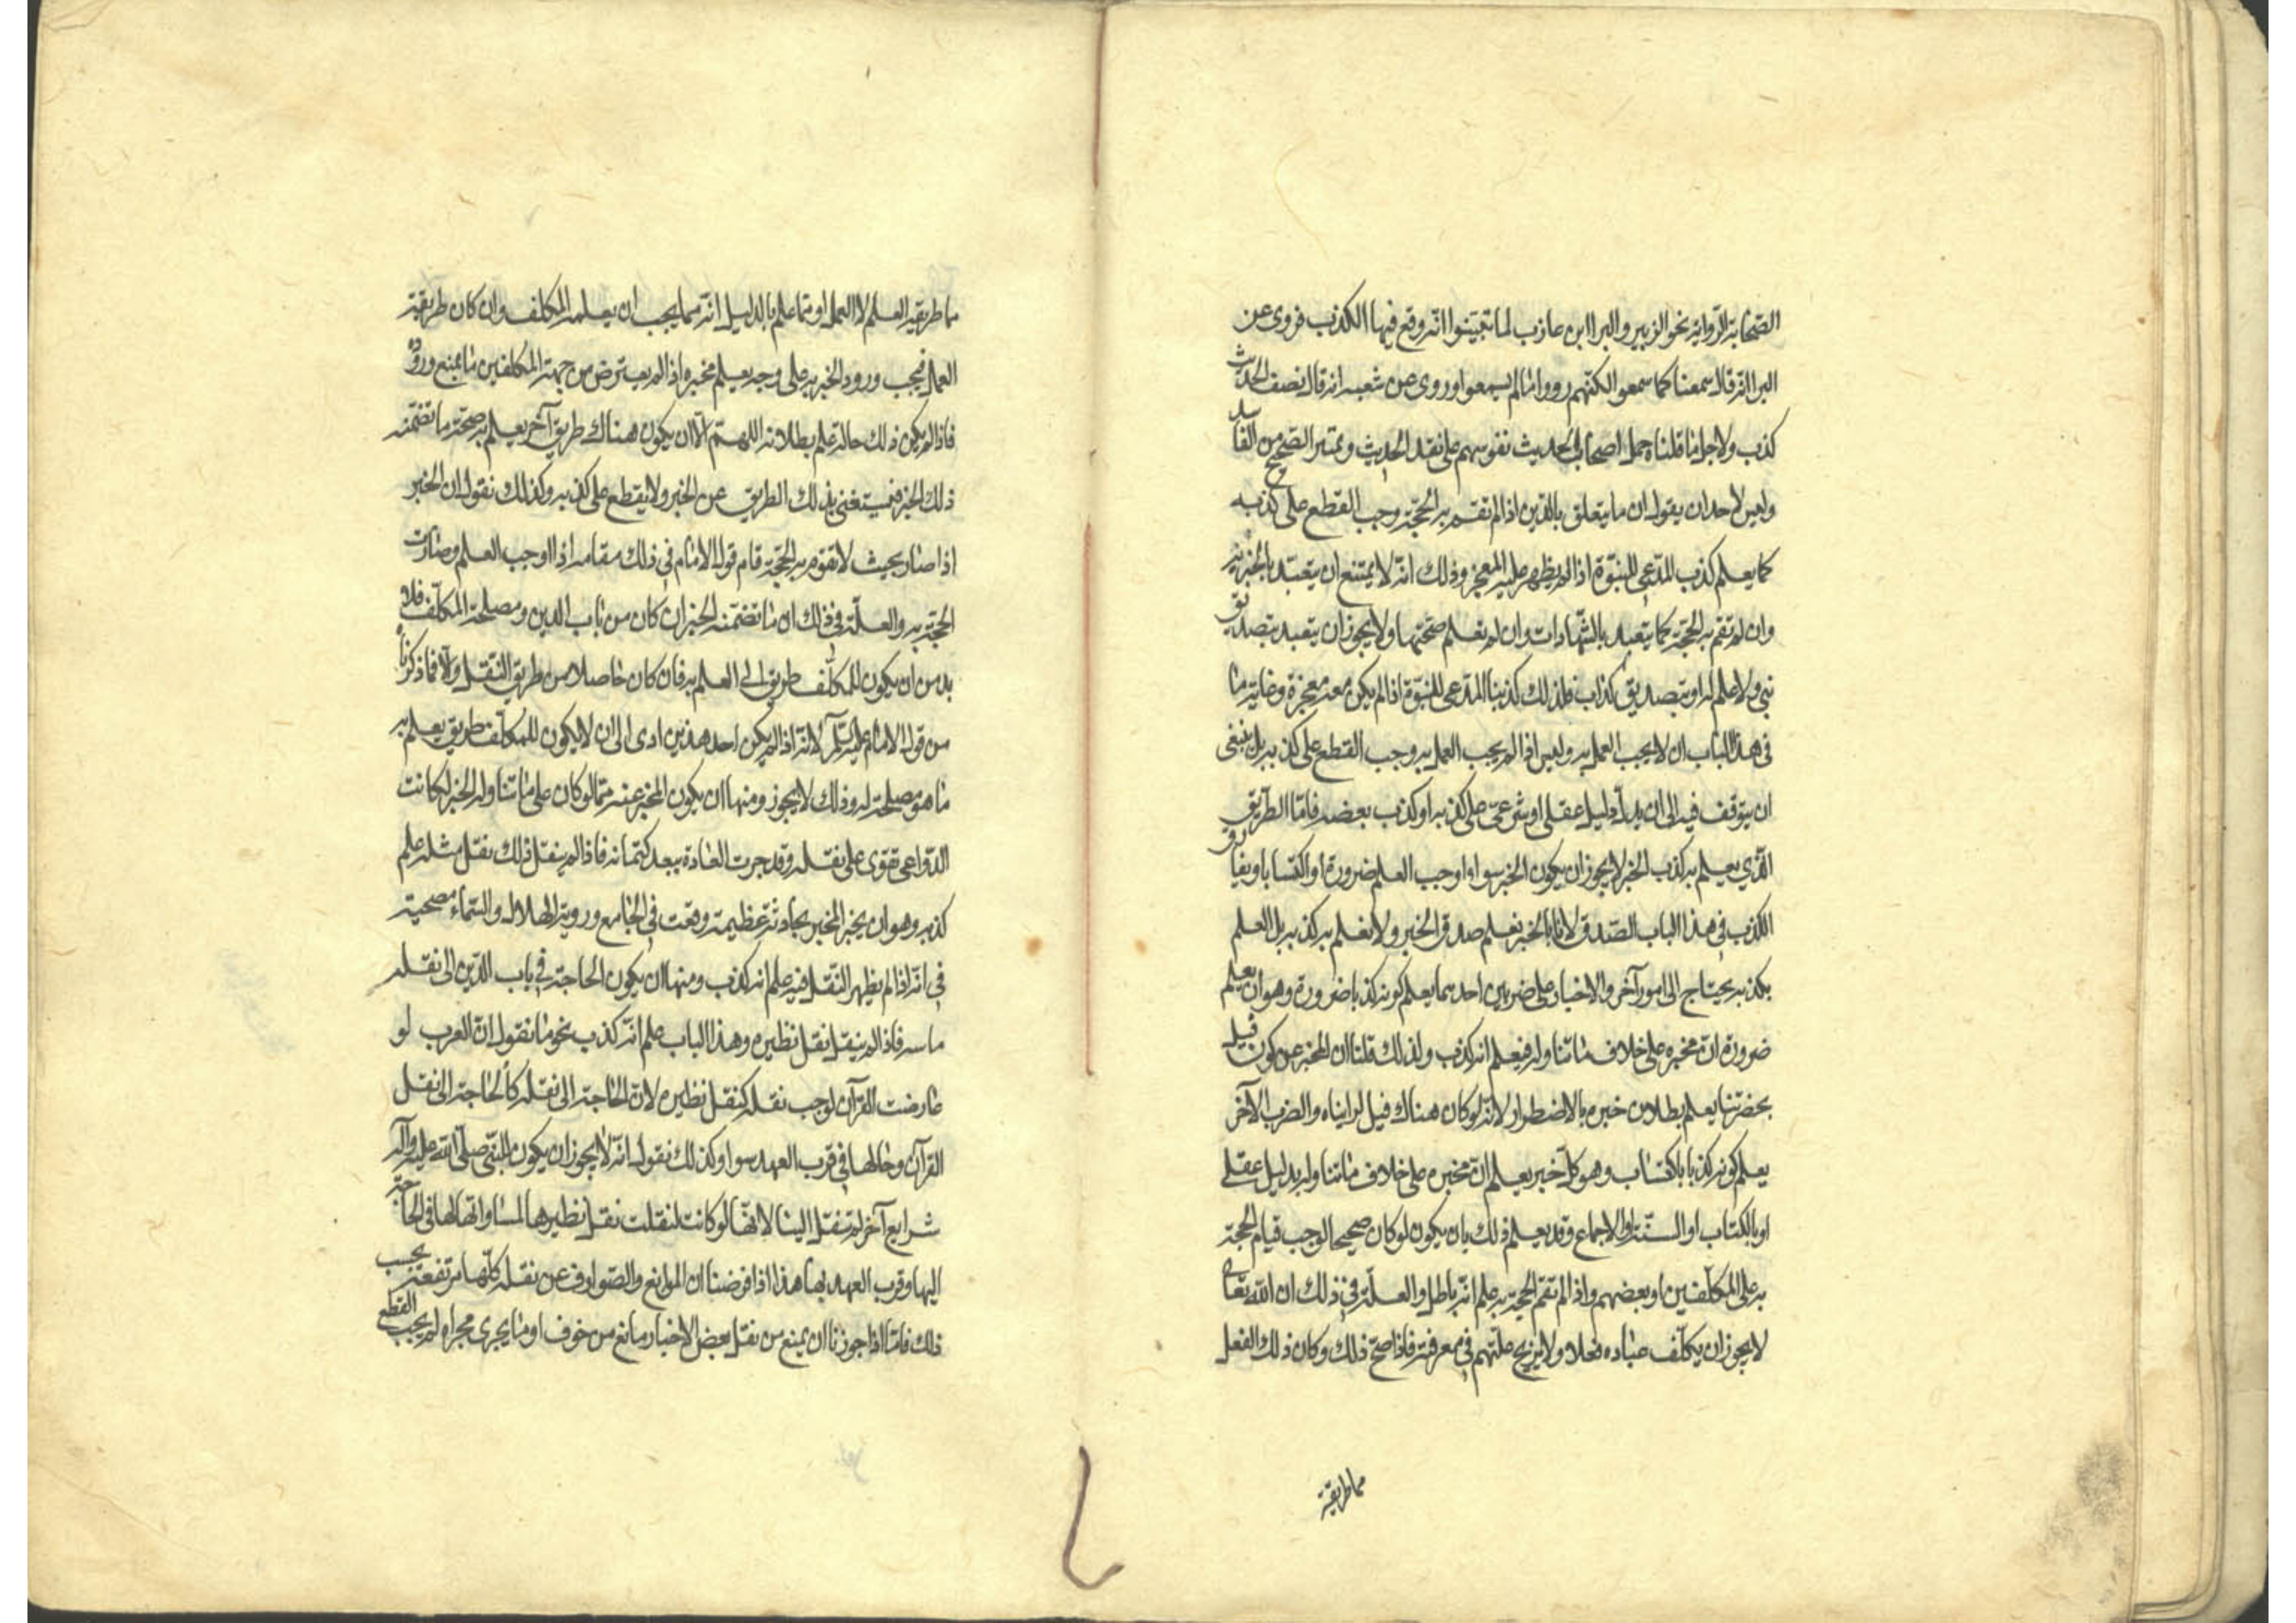 الصحابة الرواية نحو الزبير والبراابن عاذب لما تبينوا انه وقع فيها الكذب فروى عن
البرا انه قال سمعنا كما سمعوا لكنهم رووا ما لم يسمعوا وروى عن شعبه انه قال نصف الحديث
كذب ولاجل ما قلناه حمل اصحاب الحديث نفوسهم على نقد الحديث وتميز الصحيح من الفاسد
وليس لاحد ان يقول ان ما يتعلق بالدين اذا لم تقم به الحجة وجب القطع على كذبه
كما يعلم كذب المدعى للنبوة اذا لم يظهر عليه المعجز وذلك انه لا يمتنع ان يتعبد بالخبر به
وان لم تقم به الحجة كما يتعبد بالشهادات وان لم تعلم صحتها ولا يجوز ان يتعبد بتصديق
نبي ولا علم له او بتصديق كذاب فلذلك كذبنا المدعى للنبوة اذا لم يكن معه معجزة وغاية ما
فى هذا الباب ان لا يجب العمل به وليس اذا لم يجب العمل به وجب القطع على كذبه بل ينبغى
ان يتوقف فيه الى ان يدل دليل عقلى او شرعى على كذبه او كذب بعضه فاما الطريق
الذي يعلم به كذب الخبر لا يجوز ان يكون الخبر سوا اوجب العلم ضرورة او اكتسابا ويفارق
الكذب فى هذا الباب الصدق لانا بالخبر نعلم صدق الخبر ولا نعلم به كذبه بل العلم
بكذبه يحتاج الى امور آخر والاخبار على ضربين احدهما يعلم كونه كذبا ضرورة وهو ان يعلم
ضرورة ان مخبره على خلاف ما تناوله فيعلم انه كذب ولذلك قلنا ان المخبر عن كون فيل
بحضرتنا يعلم بطلان خبره بالاضطرار لانه لو كان هناك فيل لرايناه والضرب الآخر
يعلم كونه كذبا باكتساب وهو كل خبر يعلم ان مخبره على خلاف ما تناوله بدليل عقلى
او بالكتاب او السنة او الاجماع وقد يعلم ذلك بان يكون لو كان صحيحا لوجب قيام الحجة
به على المكلفين او بعضهم واذا لم تقم الحجة به علم انه باطل والعلة فى ذلك ان الله تعا
لا يجوز ان يكلف عباده فعلا ولا يزيح علتهم فى معرفته فاذا صح ذلك وكان ذلك الفعل
مما طريقة
مما طريقه العلم لا العمل او مما علم بالدليل انه مما يجب ان يعلمه المكلف وان كان طريقه
العمل فيجب ورود الخبر به على وجه يعلم مخبره اذا لم يعترض من جهة المكلفين ما يمنع وروده
فاذا لم يكن ذلك حاله علم بطلانه اللهم الا ان يكون هناك طريق آخر يعلم به صحة ما تضمنه
ذلك الخبر فيستغنى بذلك الطريق عن الخبر ولا يقطع على كذبه وكذلك نقول ان الخبر
اذا صار بحيث لا تقوم به الحجة قام قول الامام فى ذلك مقامه اذا اوجب العلم وصارت
الحجة به والعلة فى ذلك ان ما تضمنه الخبر ان كان من باب الدين ومصلحة المكلف فلا
بد من ان يكون للمكلف طريق الى العلم به فان كان حاصلا من طريق النقل والا فما ذكرناه
من قول الامام عليه السلم لانه اذا لم يكن احد هذين ادى الى ان لا يكون للمكلف طريق يعلم به
ما هو مصلحة له وذلك لا يجوز ومنها ان يكون المخبر عنه مما لو كان على ما تناوله الخبر لكانت
الدواعى تقوى على نقله وقد جرت العادة ببعد كتمانه فاذا لم ينقل ذلك نقل مثله علم
كذبه وهو ان يخبر المخبر بحادثة عظيمة وقعت فى الجامع ورؤية الهلال والسماء مصحية
فى انه اذا لم يظهر النقل فيه علم انه كذب ومنها ان يكون الحاجة فى باب الدين الى نقله
ماسه فاذا لم ينقل نقل نظيره وهذا الباب علم انه كذب نحو ما نقول ان العرب لو
عارضت القرآن لوجب نقله كنقل نظيره لان الحاجة الى نقله كالحاجة الى نقل
القرآن وحالها فى قرب العهد سوا وكذلك نقول انه لا يجوز ان يكون للنبى صلى الله عليه وآله
شرايع آخر لم تنقل الينا لانها لو كانت لنقلت نقل نظيرها لمساواتها لها فى الحاجة
اليها وقرب العهد بها هذا اذا فرضنا ان الموانع والصوارف عن نقله كلها مرتفعة يجب
ذلك فاما اذا جوزنا ان يمنع من نقل بعض الاخبار مانع من خوف او ما يجرى مجراه لم يجب القطع